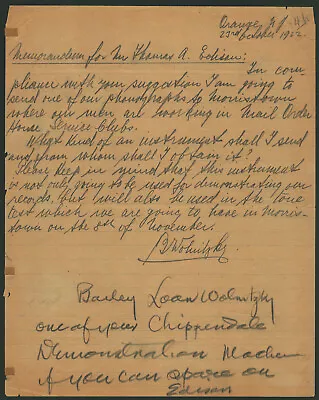 Orange, N.J.
23rd October 1922.
Memorandum for Mr Thomas A. Edison:
In com-
pliance with your suggestion I am going to
send one of our phonographs to Morristown
where our men are working in Mail Order
House Service Clubs.
What kind of an instrument shall I send
and from whom shall I obtain it?
Please keep in mind that this instrument
is not only going to be used for demonstrating our
records, but will also be used in the tone
test which we are going to have in Morris-
town on the 8th of November.
Bailey Loan Wolnitzky
one of your Chippendale
Demonstration Machine
if you can spare one
Edison